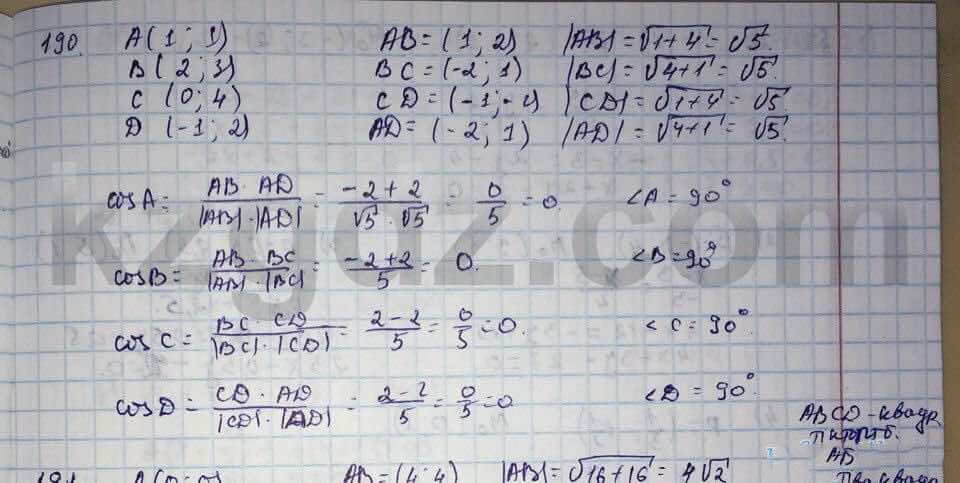 190. A(1; 1) AB = (1; 2) |AB| = √1+4 = √5.
B(2; 3) BC = (-2; 1) |BC| = √4+1 = √5.
C (0; 4) CD = (-1; -2) |CD| = √1+4 = √5.
D (-1; 2) AD = (-2; 1) |AD| = √4+1 = √5.
cosA = AB · AD / |AB|·|AD| = -2+2 / √5 · √5 = 0/5 = 0. <A = 90°
cosB = AB · BC / |AB| · |BC| = -2+2 / 5 = 0. <B = 90°
cos C = BC · CD / |BC| · |CD| = 2-2 / 5 = 0/5 = 0. < C = 90°
cosD = CD · AD / |CD| · |AD| = 2-2 / 5 = 0/5 = 0 <D = 90°
ABCD - квадр
AB = (4; 4) |AB| = √16+16 = 4√2
kzgdz.com